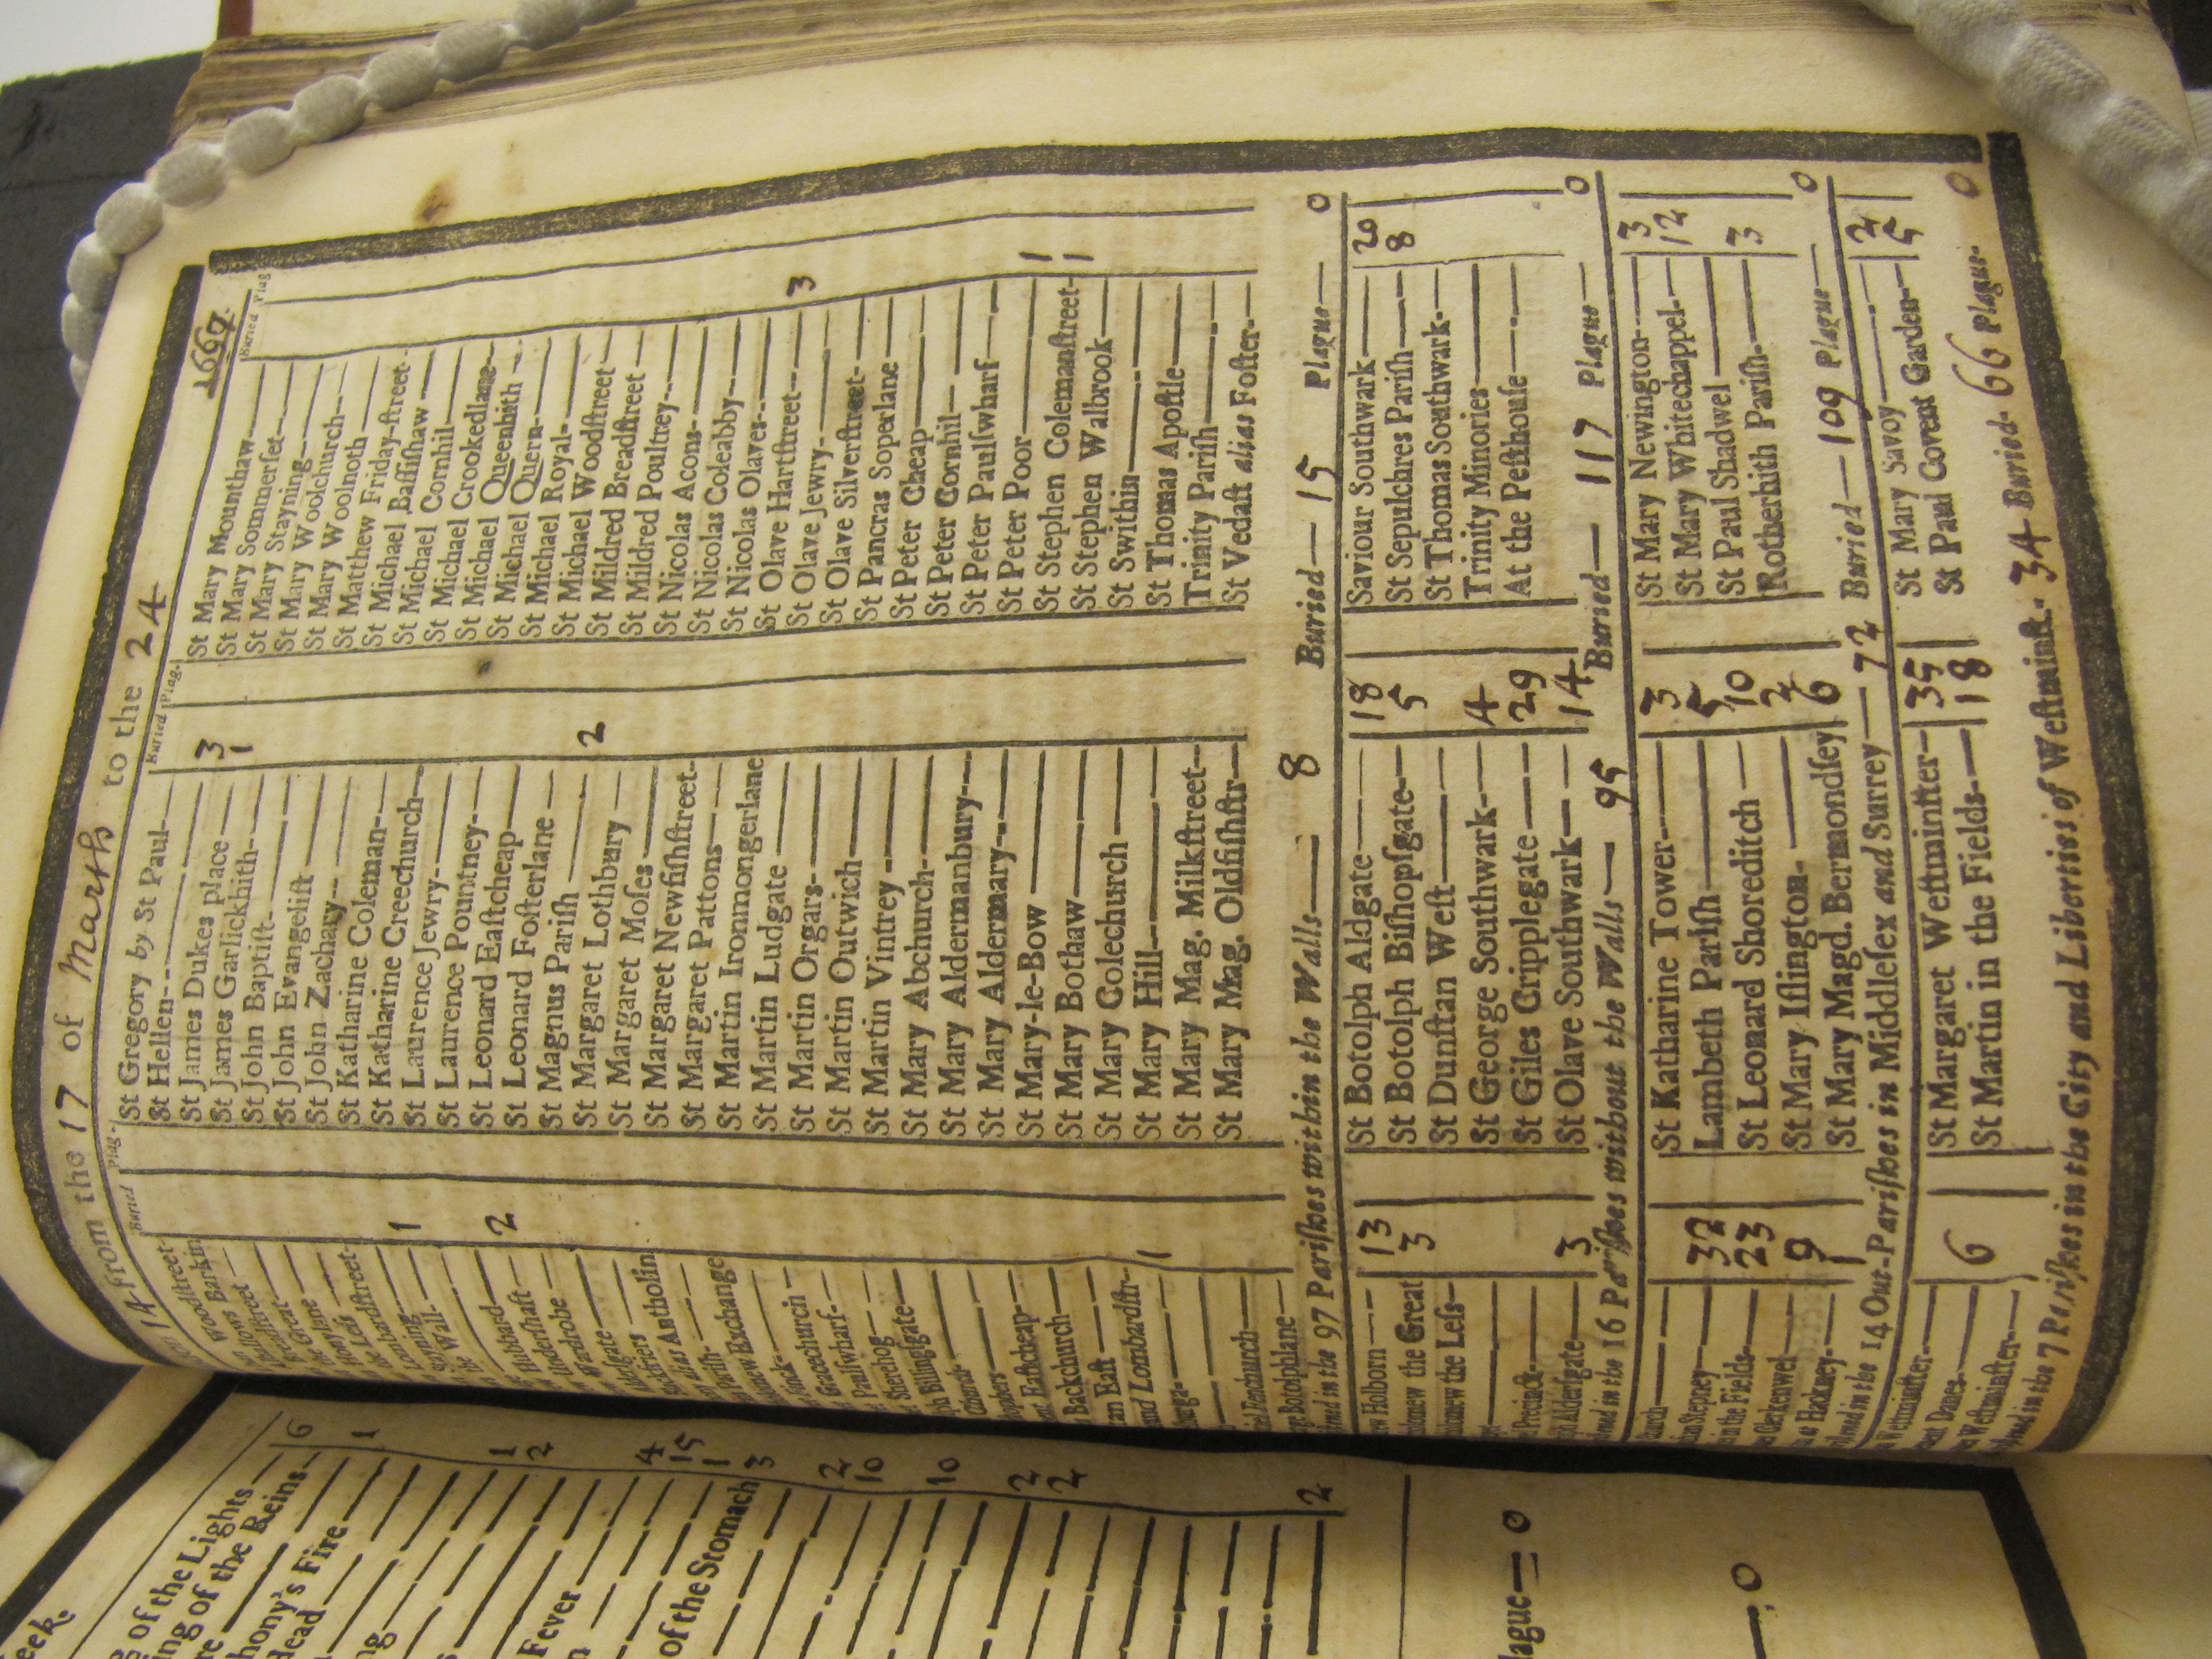 14 From the 17 of March to the 24 1667
Buried Plag.
Woodstreet-
Barkin
Breadstreet
Great
Honylane
Less
Lombardstreet-
Stayning
the Wall- 1
Hubbard
Undershaft 2
Wardrobe
Aldgate
Blackfriers
Antholin
alias
Parish-
Exchange
Fynck-
Gracechurch
Paulswharf-
Sherehog
Billingsgate
Church-
Eastcheap-
Backchurch
East
and Lombardstr- 1
Fenchurch
Botolphlane
Buried Plag.
St Gregory by St Paul-
St Hellen
St James Dukes place 3
St James Garlickhith 1
St John Baptist-
St John Evangelist
St John Zachary
St Katharine Coleman-
St Katharine Creechurch
St Laurence Jewry-
St Laurence Pountney-
St Leonard Eastcheap
St Leonard Fosterlane
St Magnus Parish
St Margaret Lothbury 2
St Margaret Moses
St Margaret Newfishstreet-
St Margaret Pattons
St Martin Ironmongerlane
St Martin Ludgate
St Martin Orgars-
St Martin Outwich
St Martin Vintrey
St Mary Abchurch-
St Mary Aldermanbury-
St Mary Aldermary-
St Mary-le-Bow
St Mary Bothaw
St Mary Colechurch
St Mary Hill-
St Mary Mag. Milkstreet-
St Mary Mag. Oldfishstr
Buried Plag
St Mary Mounthaw
St Mary Sommerset-
St Mary Stayning
St Mary Woolchurch
St Mary Woolnoth
St Matthew Friday-street
St Michael Bassishaw
St Michael Cornhil
St Michael Crookedlane
St Michael Queenhith
St Michael Quern-
St Michael Royal-
St Michael Woodstreet
St Mildred Breadstreet
St Mildred Poultrey
St Nicolas Acons-
St Nicolas Coleabby
St Nicolas Olaves-
St Olave Hartstreet- 3
St Olave Jewry-
St Olave Silverstreet-
St Pancras Soperlane
St Peter Cheap
St Peter Cornhil
St Peter Paulswharf
St Peter Poor 1
St Stephen Colemanstreet- 1
St Stephen Walbrook
St Swithin
St Thomas Apostle
Trinity Parish
St Vedast alias Foster-
in the 97 Parishes within the Walls 8 Buried 15 Plague 0
Holborn 13
the Great 3
the Less-
Precinct-
Aldersgate 3
St Botolph Aldgate 18
St Botolph Bishopsgate 5
St Dunstan West
St George Southwark- 4
St Giles Cripplegate 29
St Olave Southwark 14
Saviour Southwark 20
St Sepulchres Parish 8
St Thomas Southwark-
Trinity Minories
At the Pesthouse
in the 16 Parishes without the Walls 95 Buried 117 Plague 0
Stepney 32
in the Fields 23
Clerkenwel 9
Hackney-
St Katharine Tower 3
Lambeth Parish 5
St Leonard Shoreditch 10
St Mary Islington- 2
St Mary Magd. Bermondsey 6
St Mary Newington 3
St Mary Whitechappel- 12
St Paul Shadwel
Rotherhith Parish- 3
in the 14 Out-Parishes in Middlesex and Surrey 72 Buried 109 Plague 0
Westminster
Danes 6
Westminster
St Margaret Westminster 35
St Martin in the Fields 18
St Mary Savoy 2
St Paul Covent Garden 5
in the 7 Parishes in the City and Liberties of Westminst.- 34 Buried- 66 Plague- 0
eek.
of the Lights 6
ing of the Reins
hony's Fire 1
Head
1
2
Fever 4
15
1
of the Stomach 3
2
10
10
2
2
2
lague 0
0